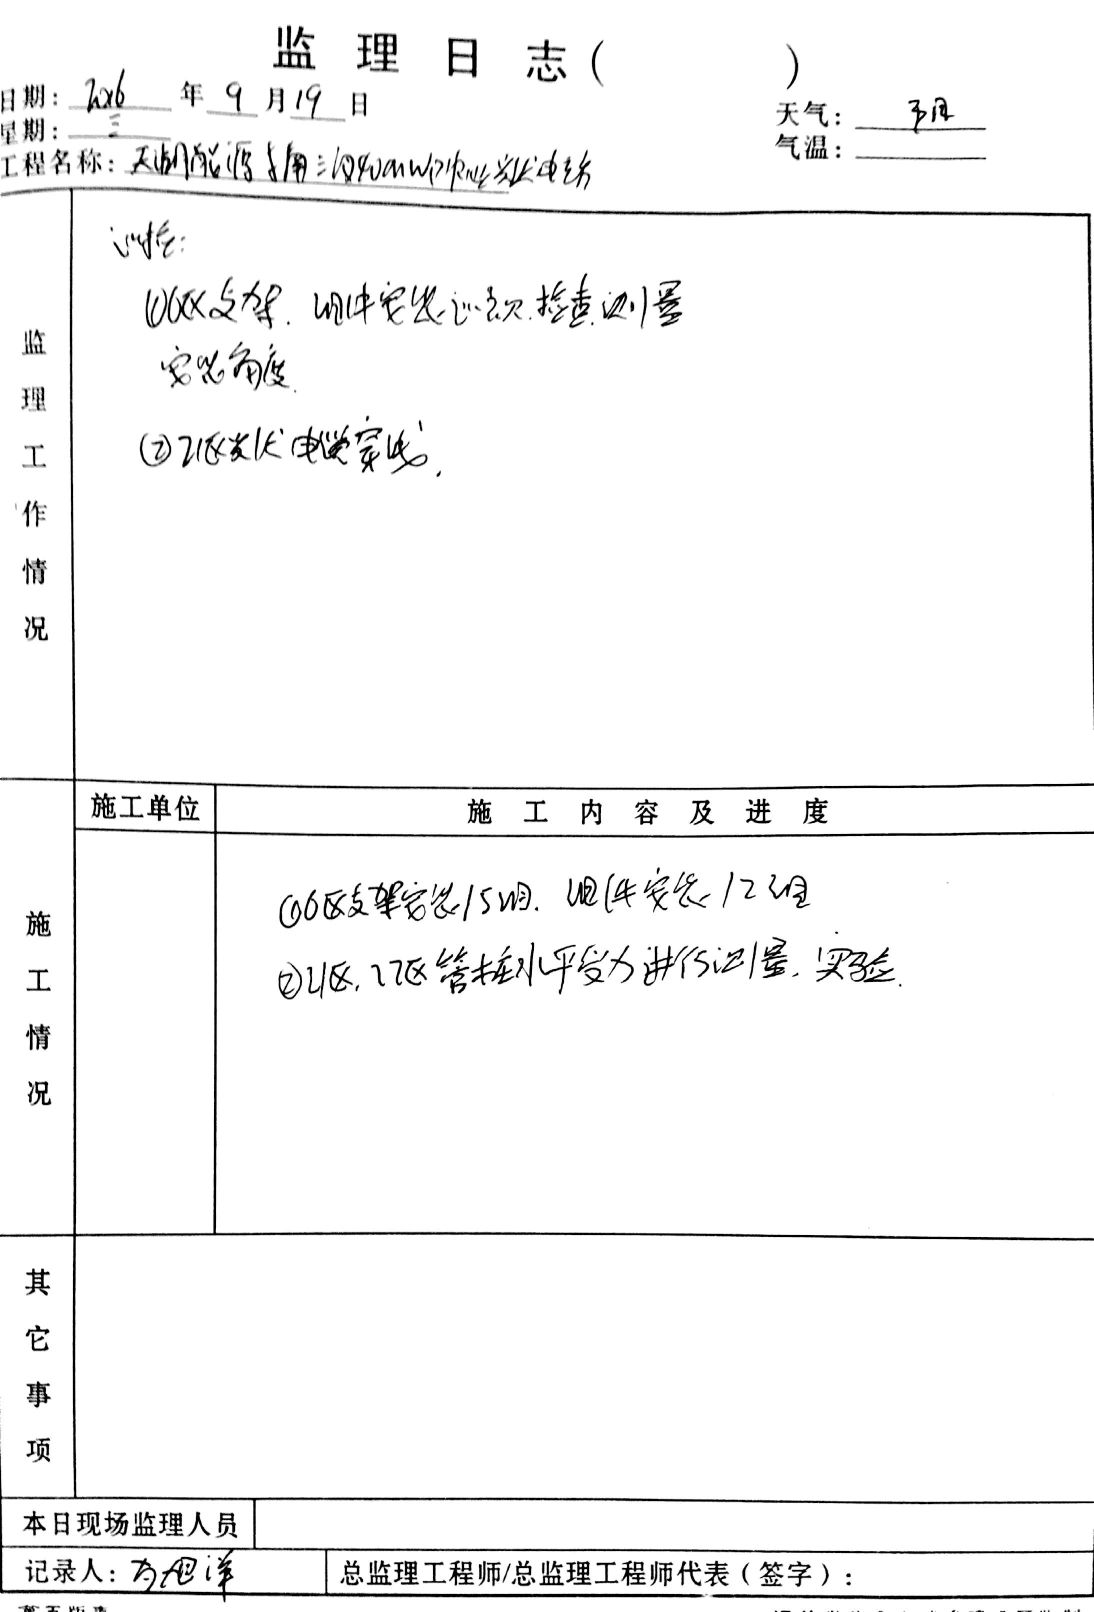 监 理 日 志 ( )
日期: 2016 年 9 月 19 日
天气: 多云
星期: 三
气温:
工程名称: 天湖能源 三 40MWP农业光伏电站
监理工作情况
巡检:
①6区支架、组件安装、检查、测量
安装角度.
②21区光伏电缆穿线.
施工单位
施 工 内 容 及 进 度
施工情况
①6区支架安装15组、组件安装12组
②21区、22区管桩水平受力进行测量、实验.
其它事项
本日现场监理人员
记录人: 旭洋
总监理工程师/总监理工程师代表(签字):